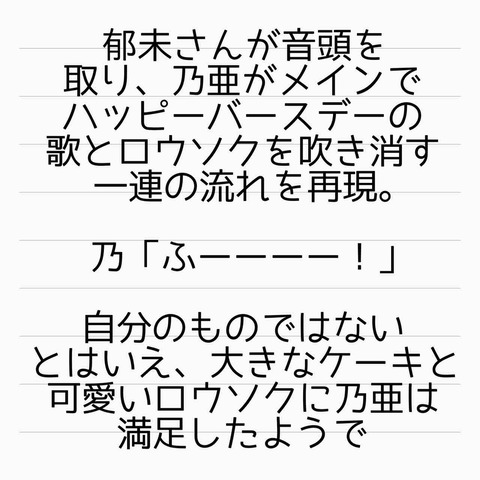 郁未さんが音頭を
取り、乃亜がメインで
ハッピーバースデーの
歌とロウソクを吹き消す
一連の流れを再現。
乃「ふーーーー！」
自分のものではない
とはいえ、大きなケーキと
可愛いロウソクに乃亜は
満足したようで